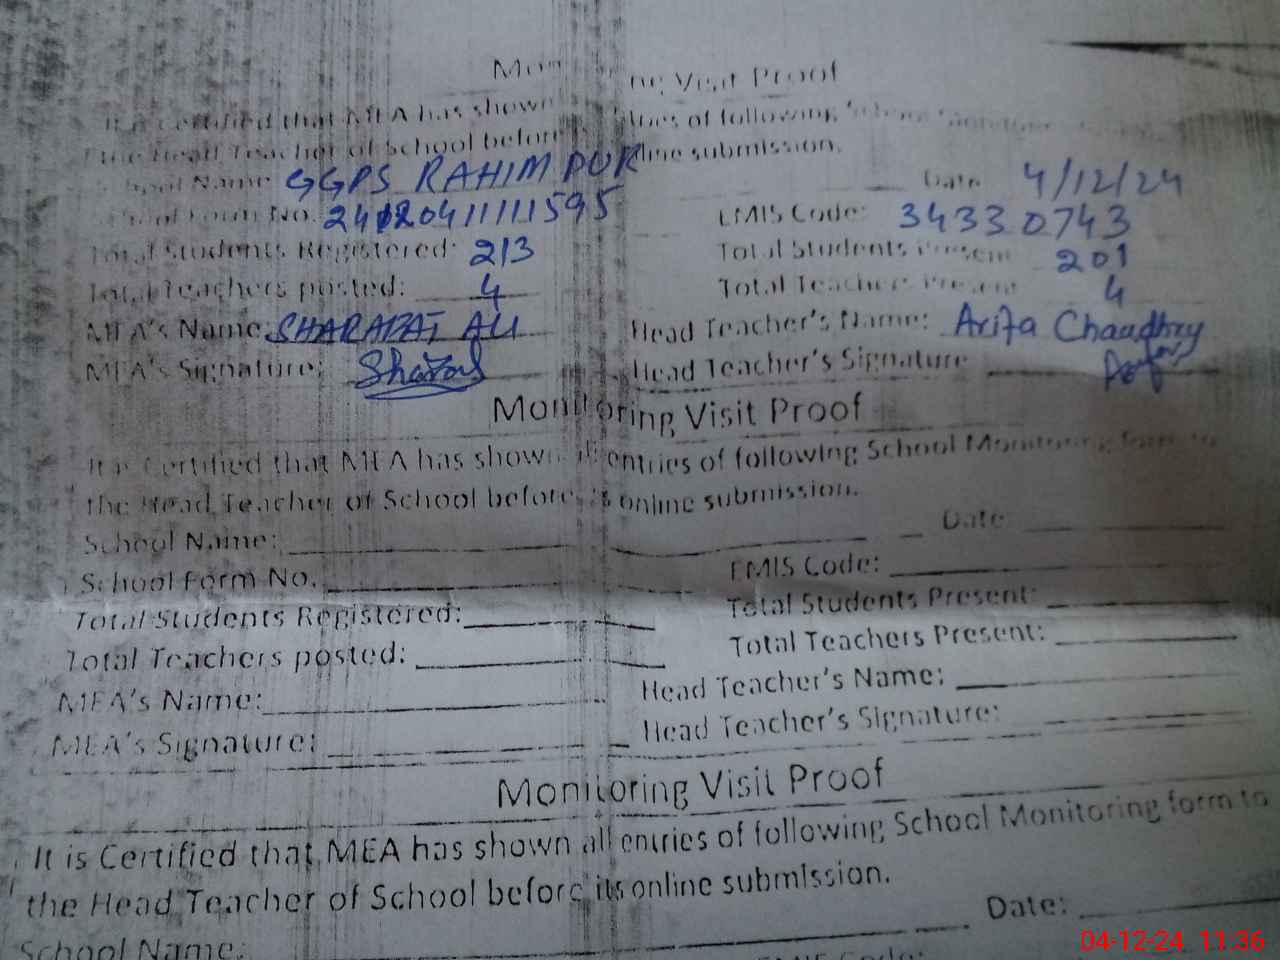 Monitoring Visit Proof
It is Certified that MEA has shown all entries of following School Monitoring
the Head Teacher of School before its online submission.
School Name GGPS RAHIM PUR Date 4/12/24
School Form No. 2412041111595 EMIS Code: 34330743
Total Students Registered: 213 Total Students Present 201
Total Teachers posted: 4 Total Teachers Present 4
MEA's Name: SHARAFAT ALI Head Teacher's Name: Arifa Chaudhry
MEA's Signature: Head Teacher's Signature
Monitoring Visit Proof
It is Certified that MEA has shown all entries of following School Monitoring form to
the Head Teacher of School before its online submission.
School Name: Date
School Form No. EMIS Code:
Total Students Registered: Total Students Present:
Total Teachers posted: Total Teachers Present:
MEA's Name: Head Teacher's Name:
MEA's Signature: Head Teacher's Signature:
Monitoring Visit Proof
It is Certified that MEA has shown all entries of following School Monitoring form to
the Head Teacher of School before its online submission.
School Name: Date:
EMIS Code:
04-12-24 11:36